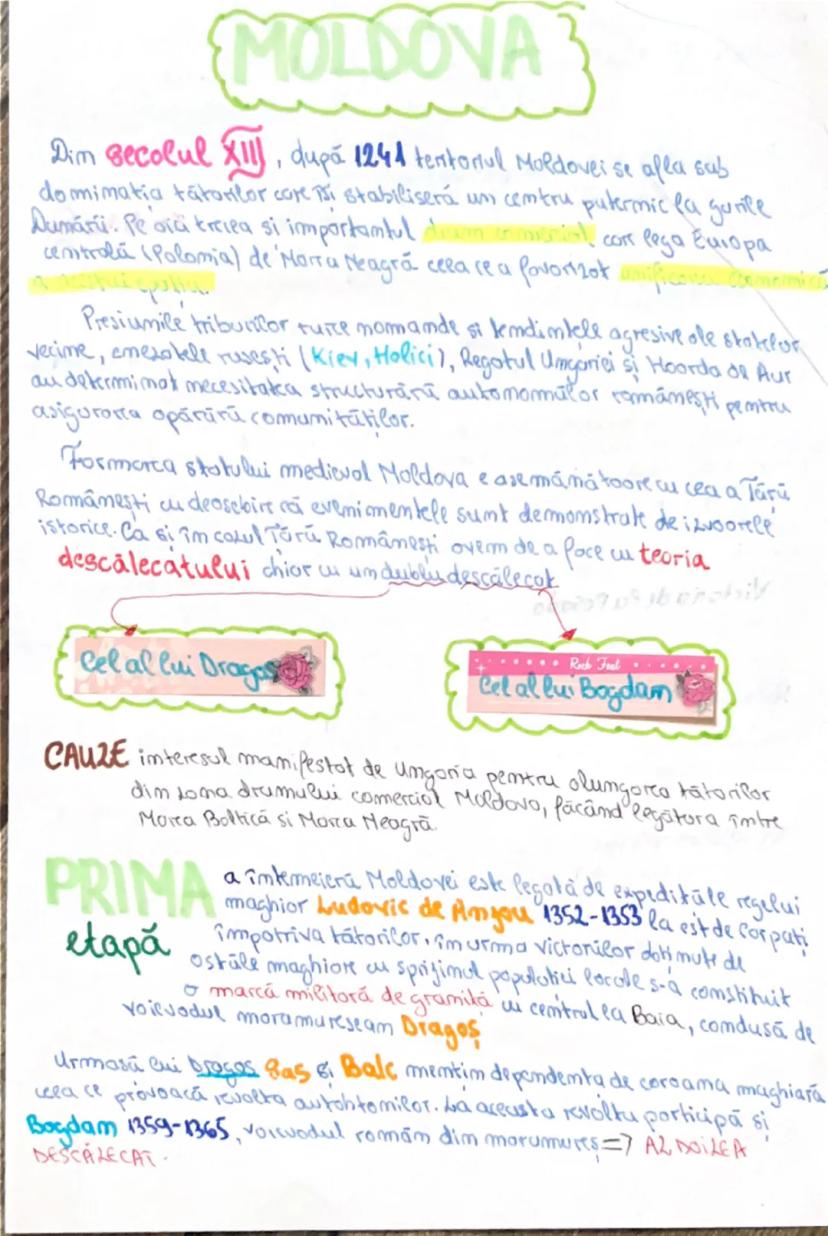 MOLDOVA
Din secolul XIII, după 1241 teritoriul Moldovei se afla sub
dominația tătarilor care își stabiliseră un centru puternic la gurile
Dunării. Pe aici trecea si importantul drum comercial care lega Europa
centrală (Polonia) de Marea Neagră ceea ce a favorizat unificarea economică
a acestui spațiu.
Presiunile triburilor turce nomande si tendințele agresive ale statelor
vecine, cnezatele rusești (Kiev, Holici), Regatul Ungariei și Hoarda de Aur
au determinat necesitatea structurării autonomiilor românești pentru
asigurarea apărării comunităților.
Formarea statului medieval Moldova e asemănătoare cu cea a Țării
Românești cu deosebire că evenimentele sunt demonstrate de izvoarele
istorice. Ca și în cazul Țării Românești avem de a face cu teoria
descălecatului chiar cu un dublu descălecat
Cel al lui Dragoș
Rock Feel
Cel al lui Bogdam
CAUZE interesul manifestat de Ungaria pentru alungarea tătarilor
din zona drumului comercial Moldova, făcând legătura între
Marea Baltică si Marea Neagră.
PRIMA a întemeierii Moldovei este legată de expedițiile regelui
etapă maghiar Ludovic de Anjou 1352-1353 la est de Carpați
împotriva tătarilor, în urma victoriilor obținute de
ostile maghiare cu sprijinul populației locale s-a constituit
o marcă militară de graniță cu centrul la Baia, condusă de
voievodul maramureseam Dragoș
Urmașii lui Dragoș Sas și Balc mențin dependența de coroana maghiară
ceea ce provoacă revolta autohtonilor. La aceasta revolta participă și
Bogdam 1359-1365, voievodul român din maramureș => AL DOILEA
DESCĂLECAT.